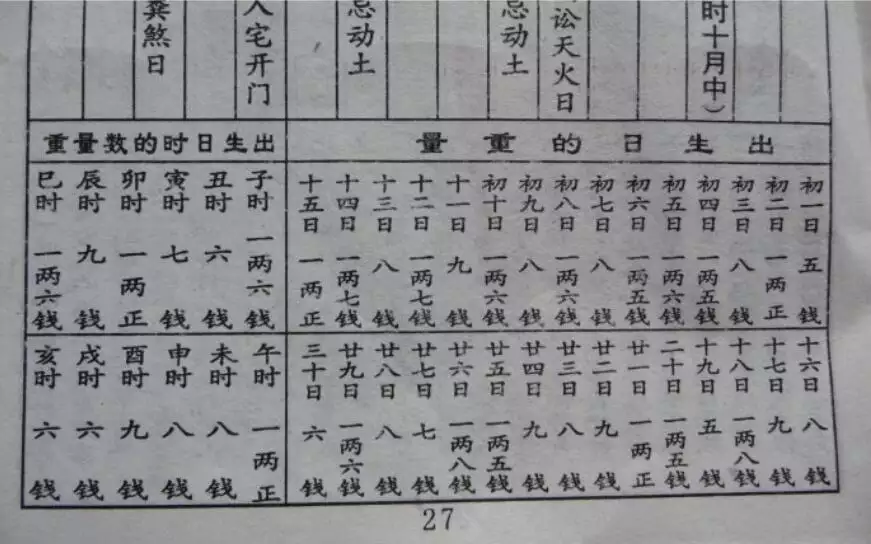 时十月中）
讼天火日
忌动土
忌动土
入宅开门
粪煞日
出生日的重量
初一日 五钱
初二日 一两正
初三日 八钱
初四日 一两五钱
初五日 一两六钱
初六日 一两五钱
初七日 八钱
初八日 一两六钱
初九日 八钱
初十日 一两六钱
十一日 九钱
十二日 一两七钱
十三日 八钱
十四日 一两七钱
十五日 一两正
十六日 八钱
十七日 九钱
十八日 一两八钱
十九日 五钱
二十日 一两五钱
廿一日 一两正
廿二日 九钱
廿三日 八钱
廿四日 九钱
廿五日 一两五钱
廿六日 一两八钱
廿七日 七钱
廿八日 八钱
廿九日 一两六钱
三十日 六钱
出生日时的数量重
子时 一两六钱
丑时 六钱
寅时 七钱
卯时 一两正
辰时 九钱
巳时 一两六钱
午时 一两正
未时 八钱
申时 八钱
酉时 九钱
戌时 六钱
亥时 六钱
27